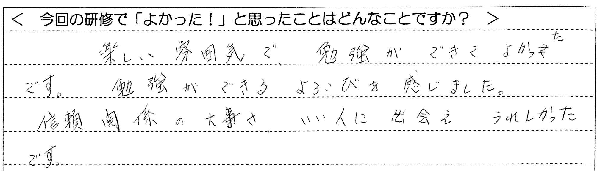 ＜ 今回の研修で「よかった！」と思ったことはどんなことですか？ ＞
楽しい雰囲気で、勉強ができてよかった
です。勉強ができるよろこびを感じました。
信頼関係の大事さ いい人に出会え うれしかった
です。